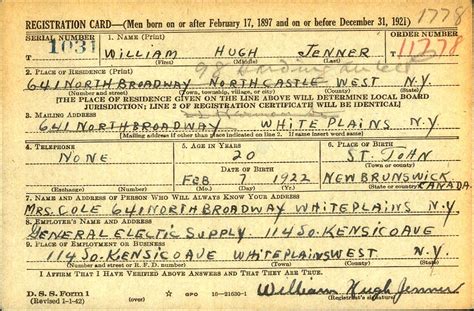 1778
REGISTRATION CARD—(Men born on or after February 17, 1897 and on or before December 31, 1921)
SERIAL NUMBER 1. NAME (Print) ORDER NUMBER
1031 WILLIAM HUGH JENNER 11778
(First) (Middle) (Last)
2. PLACE OF RESIDENCE (Print)
641 NORTH BROADWAY NORTH CASTLE WEST N.Y.
(Number and street) (Town, township, village, or city) (County) (State)
[THE PLACE OF RESIDENCE GIVEN ON THE LINE ABOVE WILL DETERMINE LOCAL BOARD
JURISDICTION; LINE 2 OF REGISTRATION CERTIFICATE WILL BE IDENTICAL]
3. MAILING ADDRESS
641 NORTH BROADWAY WHITE PLAINS N.Y
[Mailing address if other than place indicated on line 2. If same insert word same]
4. TELEPHONE 5. AGE IN YEARS 6. PLACE OF BIRTH
NONE 20 ST JOHN
DATE OF BIRTH (Town or county)
FEB 7 1922 NEW BRUNSWICK
CANADA
(Exchange) (Number) (Mo.) (Day) (Yr.) (State or country)
7. NAME AND ADDRESS OF PERSON WHO WILL ALWAYS KNOW YOUR ADDRESS
MRS. COLE 641 NORTH BROADWAY WHITE PLAINS N.Y
8. EMPLOYER'S NAME AND ADDRESS
GENERAL ELECTIC SUPPLY 114 SO. KENSICO AVE
9. PLACE OF EMPLOYMENT OR BUSINESS
114 SO. KENSICO AVE WHITE PLAINS WEST N.Y.
(Number and street or R. F. D. number) (Town) (County) (State)
I AFFIRM THAT I HAVE VERIFIED ABOVE ANSWERS AND THAT THEY ARE TRUE.
D. S. S. Form 1 GPO 16—21630-1 William Hugh Jenner
(Revised 1-1-42) (Registrant's signature)